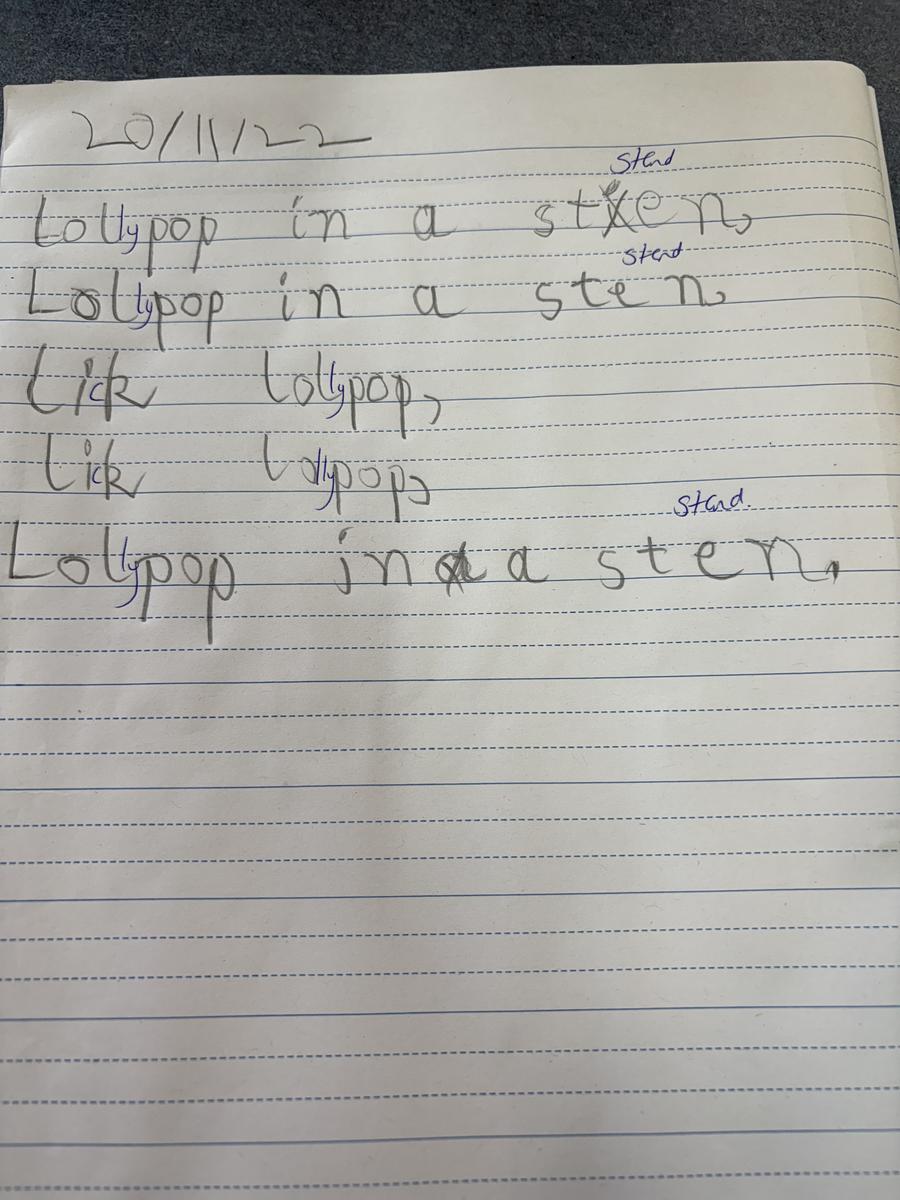 20/11/22
stand
Lollypop in a sten,
stand
Lollypop in a sten,
Lick Lollypop,
Lick Lollypop,
stand.
Lollypop in a sten,